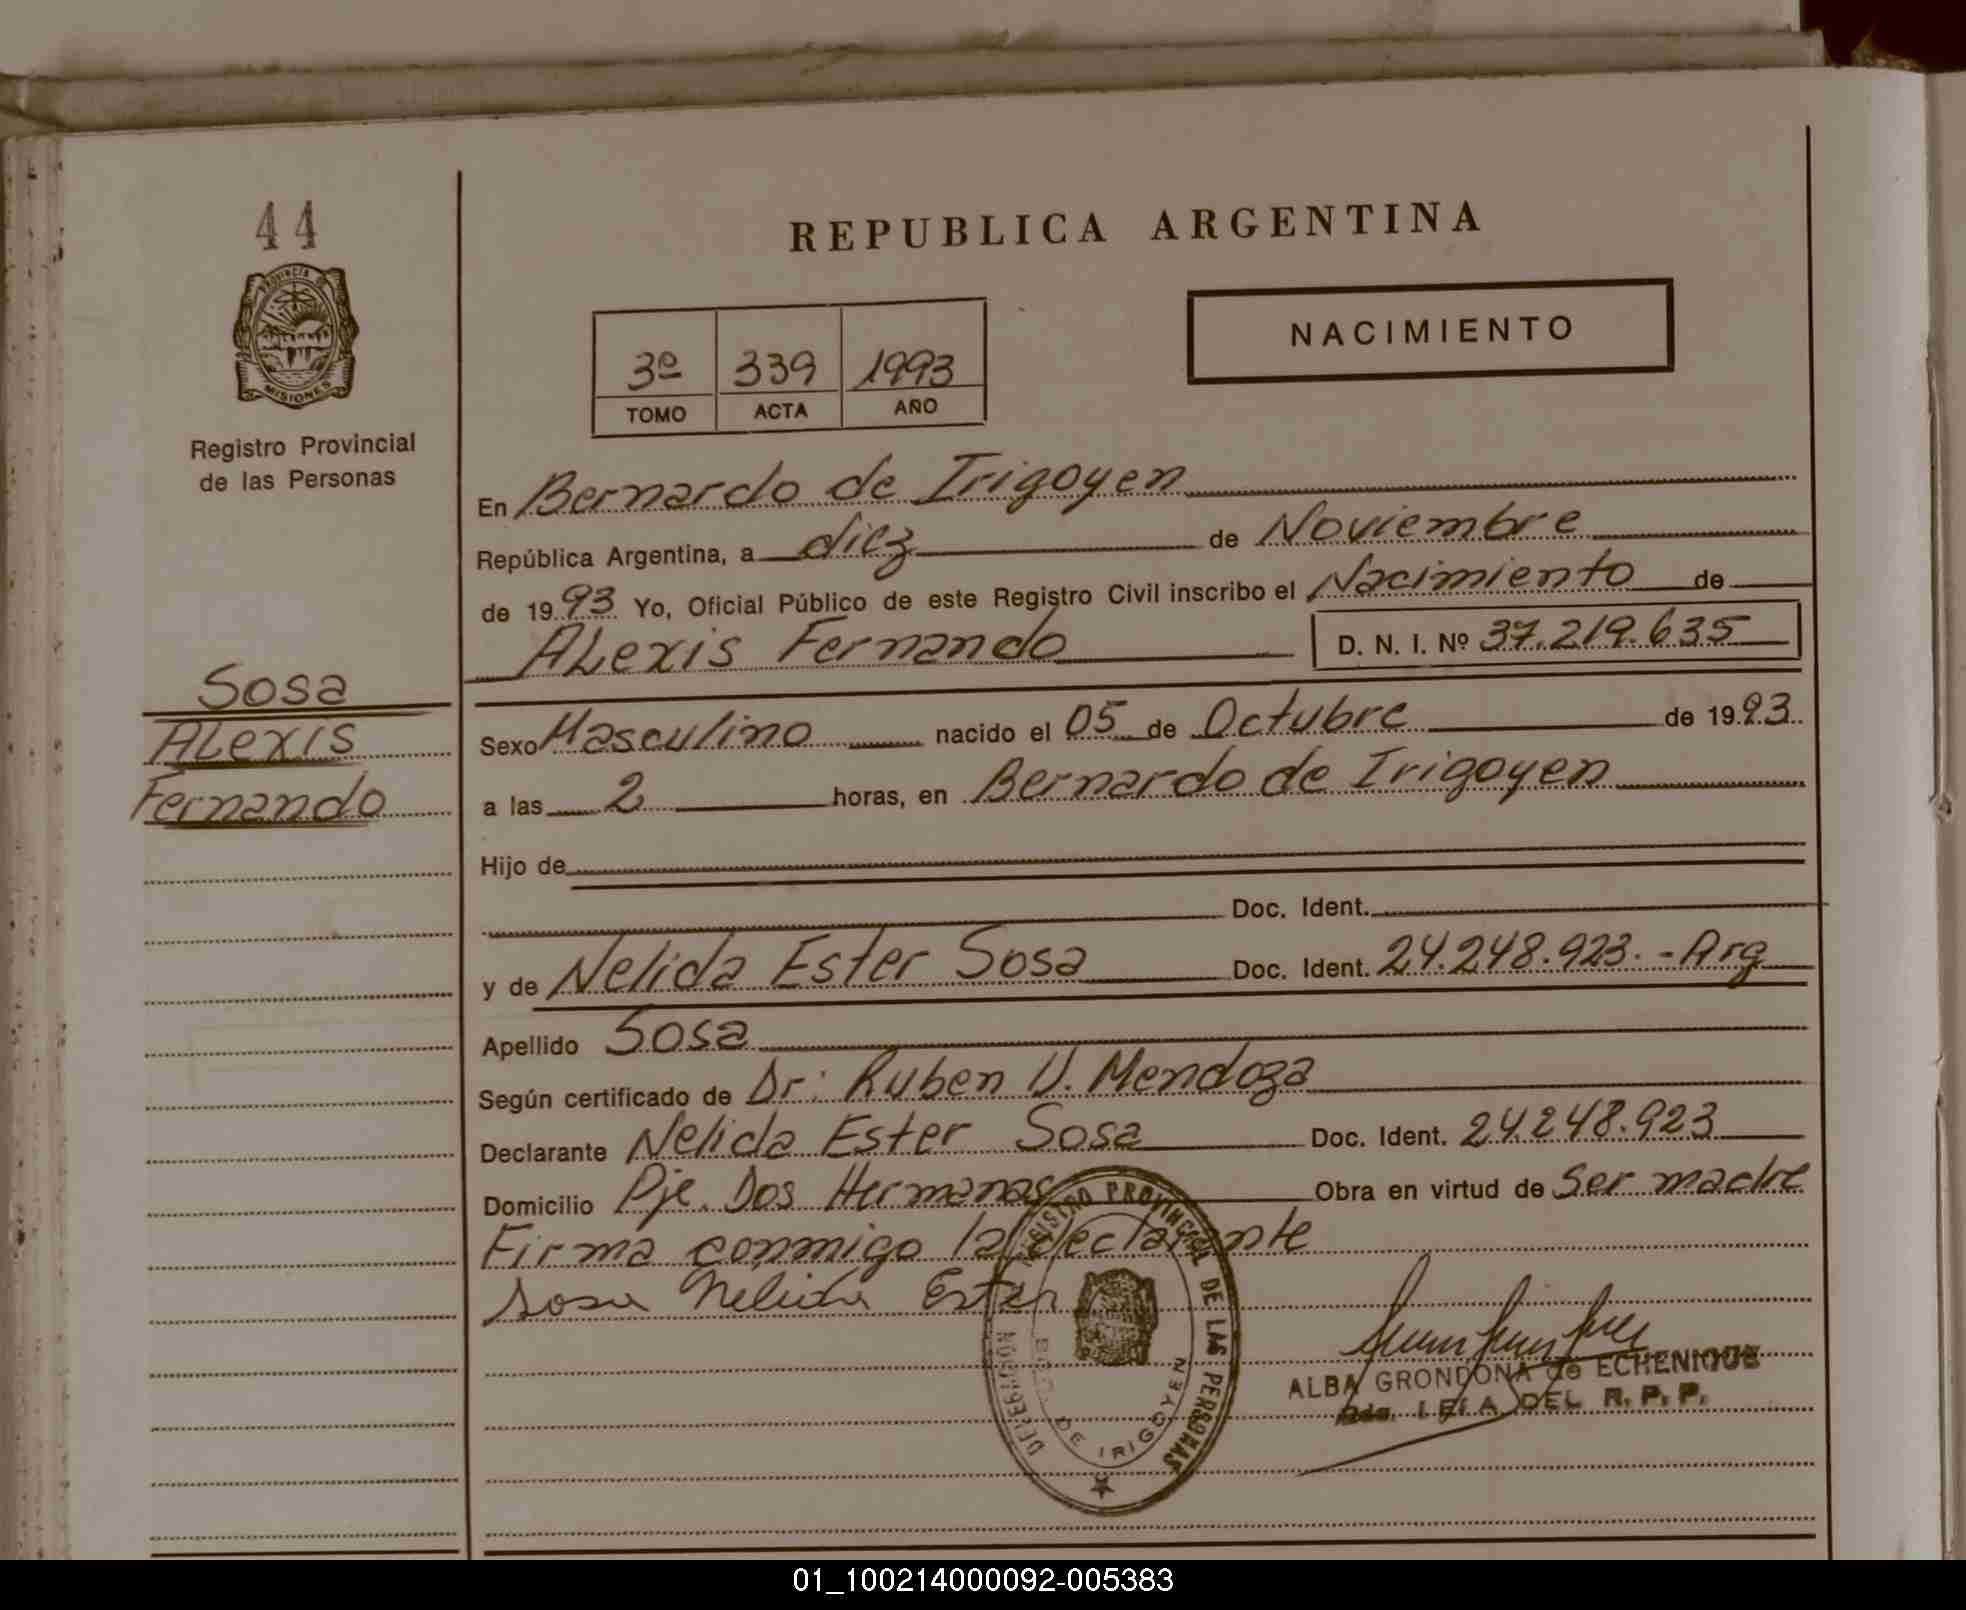 44
PROVINCIA DE
MISIONES
Registro Provincial
de las Personas
Sosa
ALexis
Fernando
REPUBLICA ARGENTINA
NACIMIENTO
3º 339 1993
TOMO ACTA AÑO
En Bernardo de Irigoyen
República Argentina, a diez de Noviembre
de 1993 Yo, Oficial Público de este Registro Civil inscribo el Nacimiento de
ALexis Fernando D. N. I. Nº 37.219.635
Sexo Masculino nacido el 05 de Octubre de 1993
a las 2 horas, en Bernardo de Irigoyen
Hijo de
Doc. Ident.
y de Nelida Ester Sosa Doc. Ident. 24.248.923.-Arg
Apellido Sosa
Según certificado de Dr: Ruben V. Mendoza
Declarante Nelida Ester Sosa Doc. Ident. 24.248.923
Domicilio Pje. Dos Hermanas Obra en virtud de Ser madre
Firma conmigo la declarante
Sosa Nelida Ester
REGISTRO PROVINCIAL DE LAS PERSONAS
DE IRIGOYEN
ALBA GRONDONA de ECHENIQUE
DEL R. P. P.
01_100214000092-005383